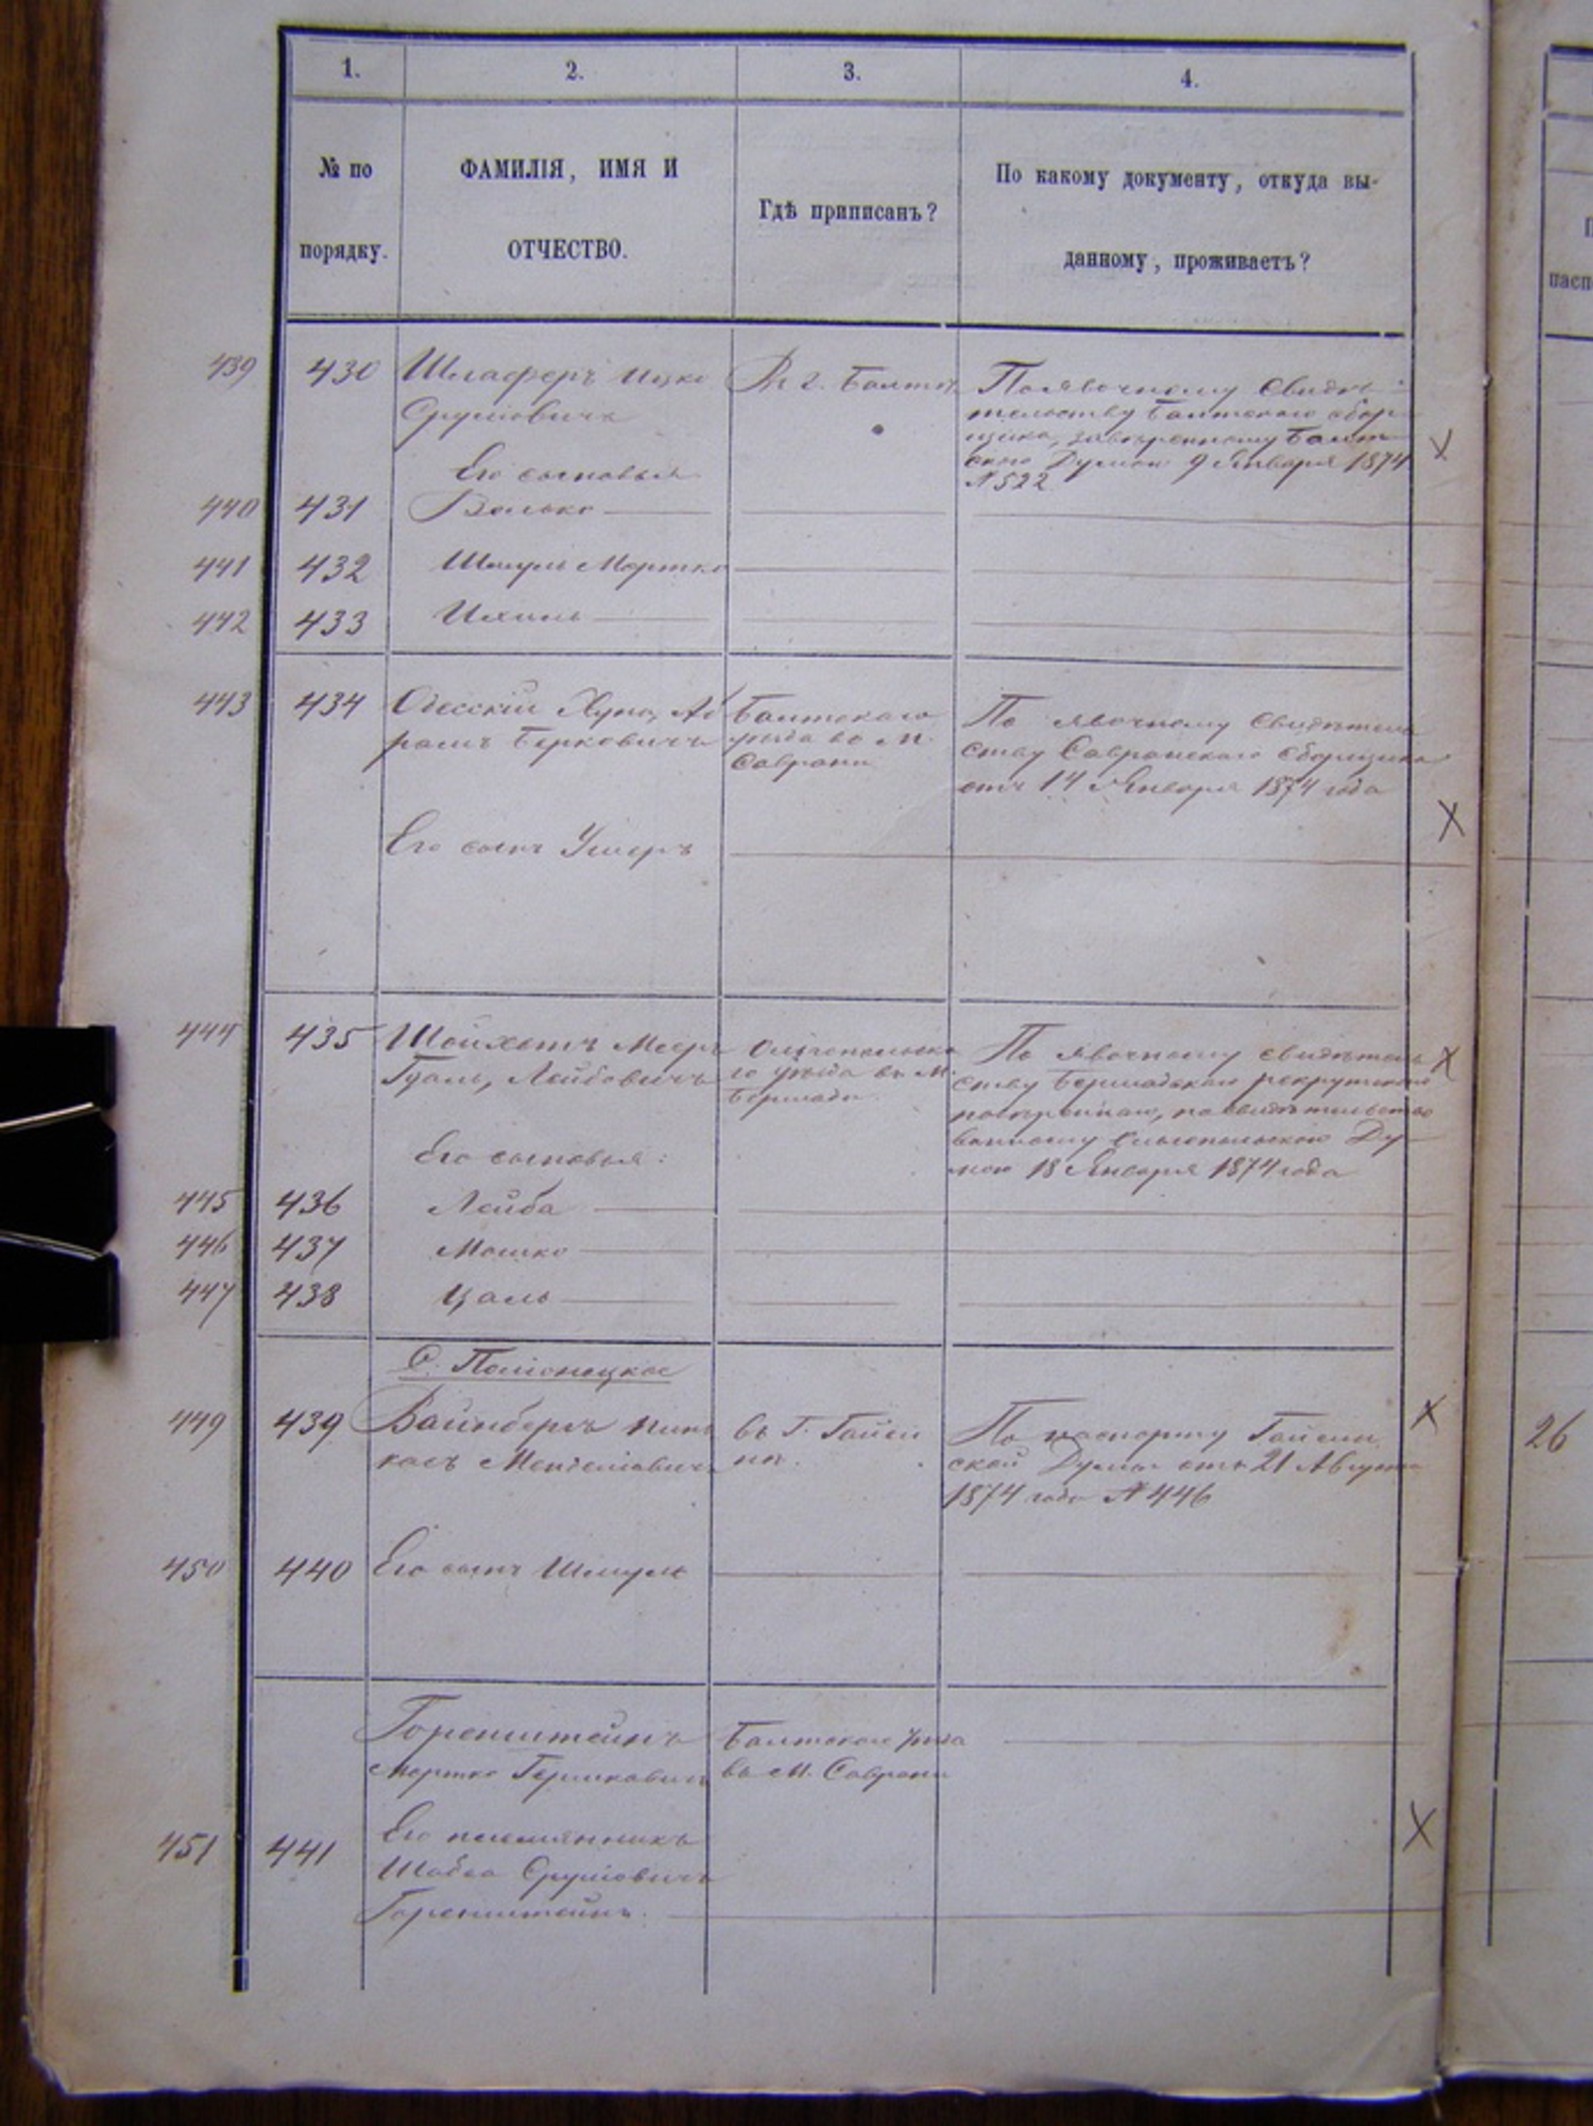 1. 2. 3. 4.
№ по
порядку.
ФАМИЛІЯ, ИМЯ И
ОТЧЕСТВО.
Гдѣ приписанъ?
По какому документу, откуда вы-
данному, проживаетъ?
439 430 Шлаферъ Ицко
Срулiовичъ
Въ г. Балтѣ
По явочному свидѣ-
тельству Балтскаго сбор-
щика, завѣренному Балт-
скою Думою 9 Января 1874
№ 522
Его сыновья
440 431 Волько
441 432 Шмуль Мортко
442 433 Ихиль
443 434 Одесскій Хуна, Аб
рамъ Берковичъ
Балтскаго
уѣзда въ м.
Саврани
По явочному свидѣтель
ству Савранскаго сборщика
отъ 14 Января 1874 года
Его сынъ Ушеръ
444 435 Шойхетъ Мееръ
Гдаль, Лейбовичъ
Ольгопольска
го уѣзда въ м.
Бершади
По явочному свидѣтель
ству Бершадскаго рекрутскаго
засвидѣтельство
ванному Ольгопольскою Ду-
мою 18 Января 1874 года
Его сыновья:
445 436 Лейба
446 437 Мошко
447 438 Цаль
С. Полонецкое
449 439 Вайнберъ Пин
касъ Менделіовичъ
въ Г. Гайси
нѣ.
По паспорту Гайсин
ской Думы отъ 21 Августа
1874 года № 446
26
450 440 Его сынъ Шмуль
Горенштейнъ
Мортко Гершковичъ
Балтскаго уѣзда
въ м. Саврани
451 441 Его племянникъ
Шабса Срулiовичъ
Горенштейнъ.